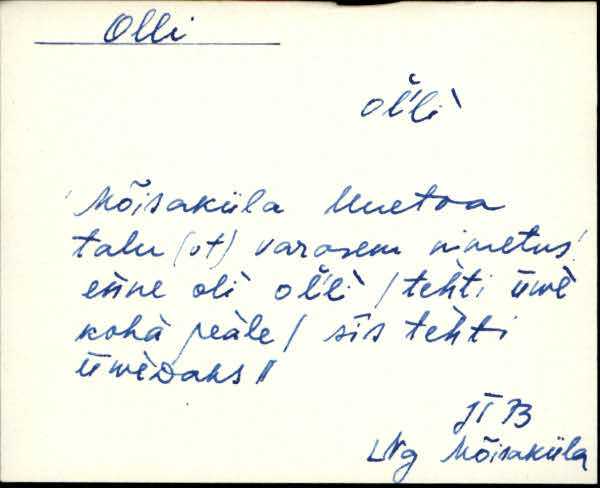 Olli
ol̆lì̮
Mõisaküla Uuetoa
talu (vt) varasem nimetus
eńne olì̮ ol̆lì̮ / tehti üwè
kohà peàle / sīs tehti
üwèDaks //
JT 73
LNg Mõisaküla